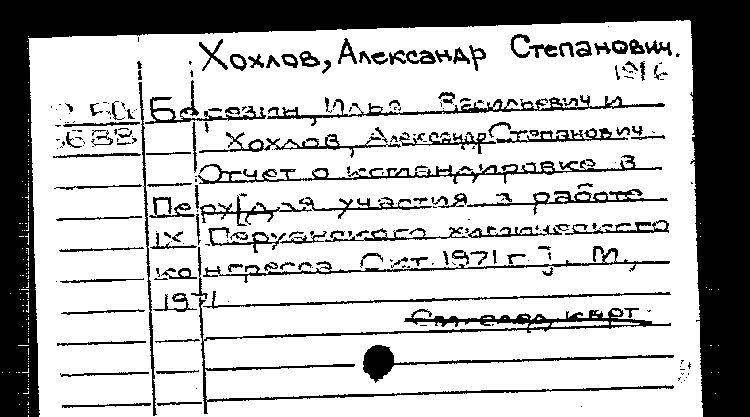 Хохлов, Александр Степанович.
1916
Березин, Илья Васильевич и
6688 Хохлов, Александр Степанович.
Отчет о командировке в
Перу [для участия в работе
IX Перуанского химического
конгресса. Окт. 1971 г.]. М.,
1971
См. след. карт.